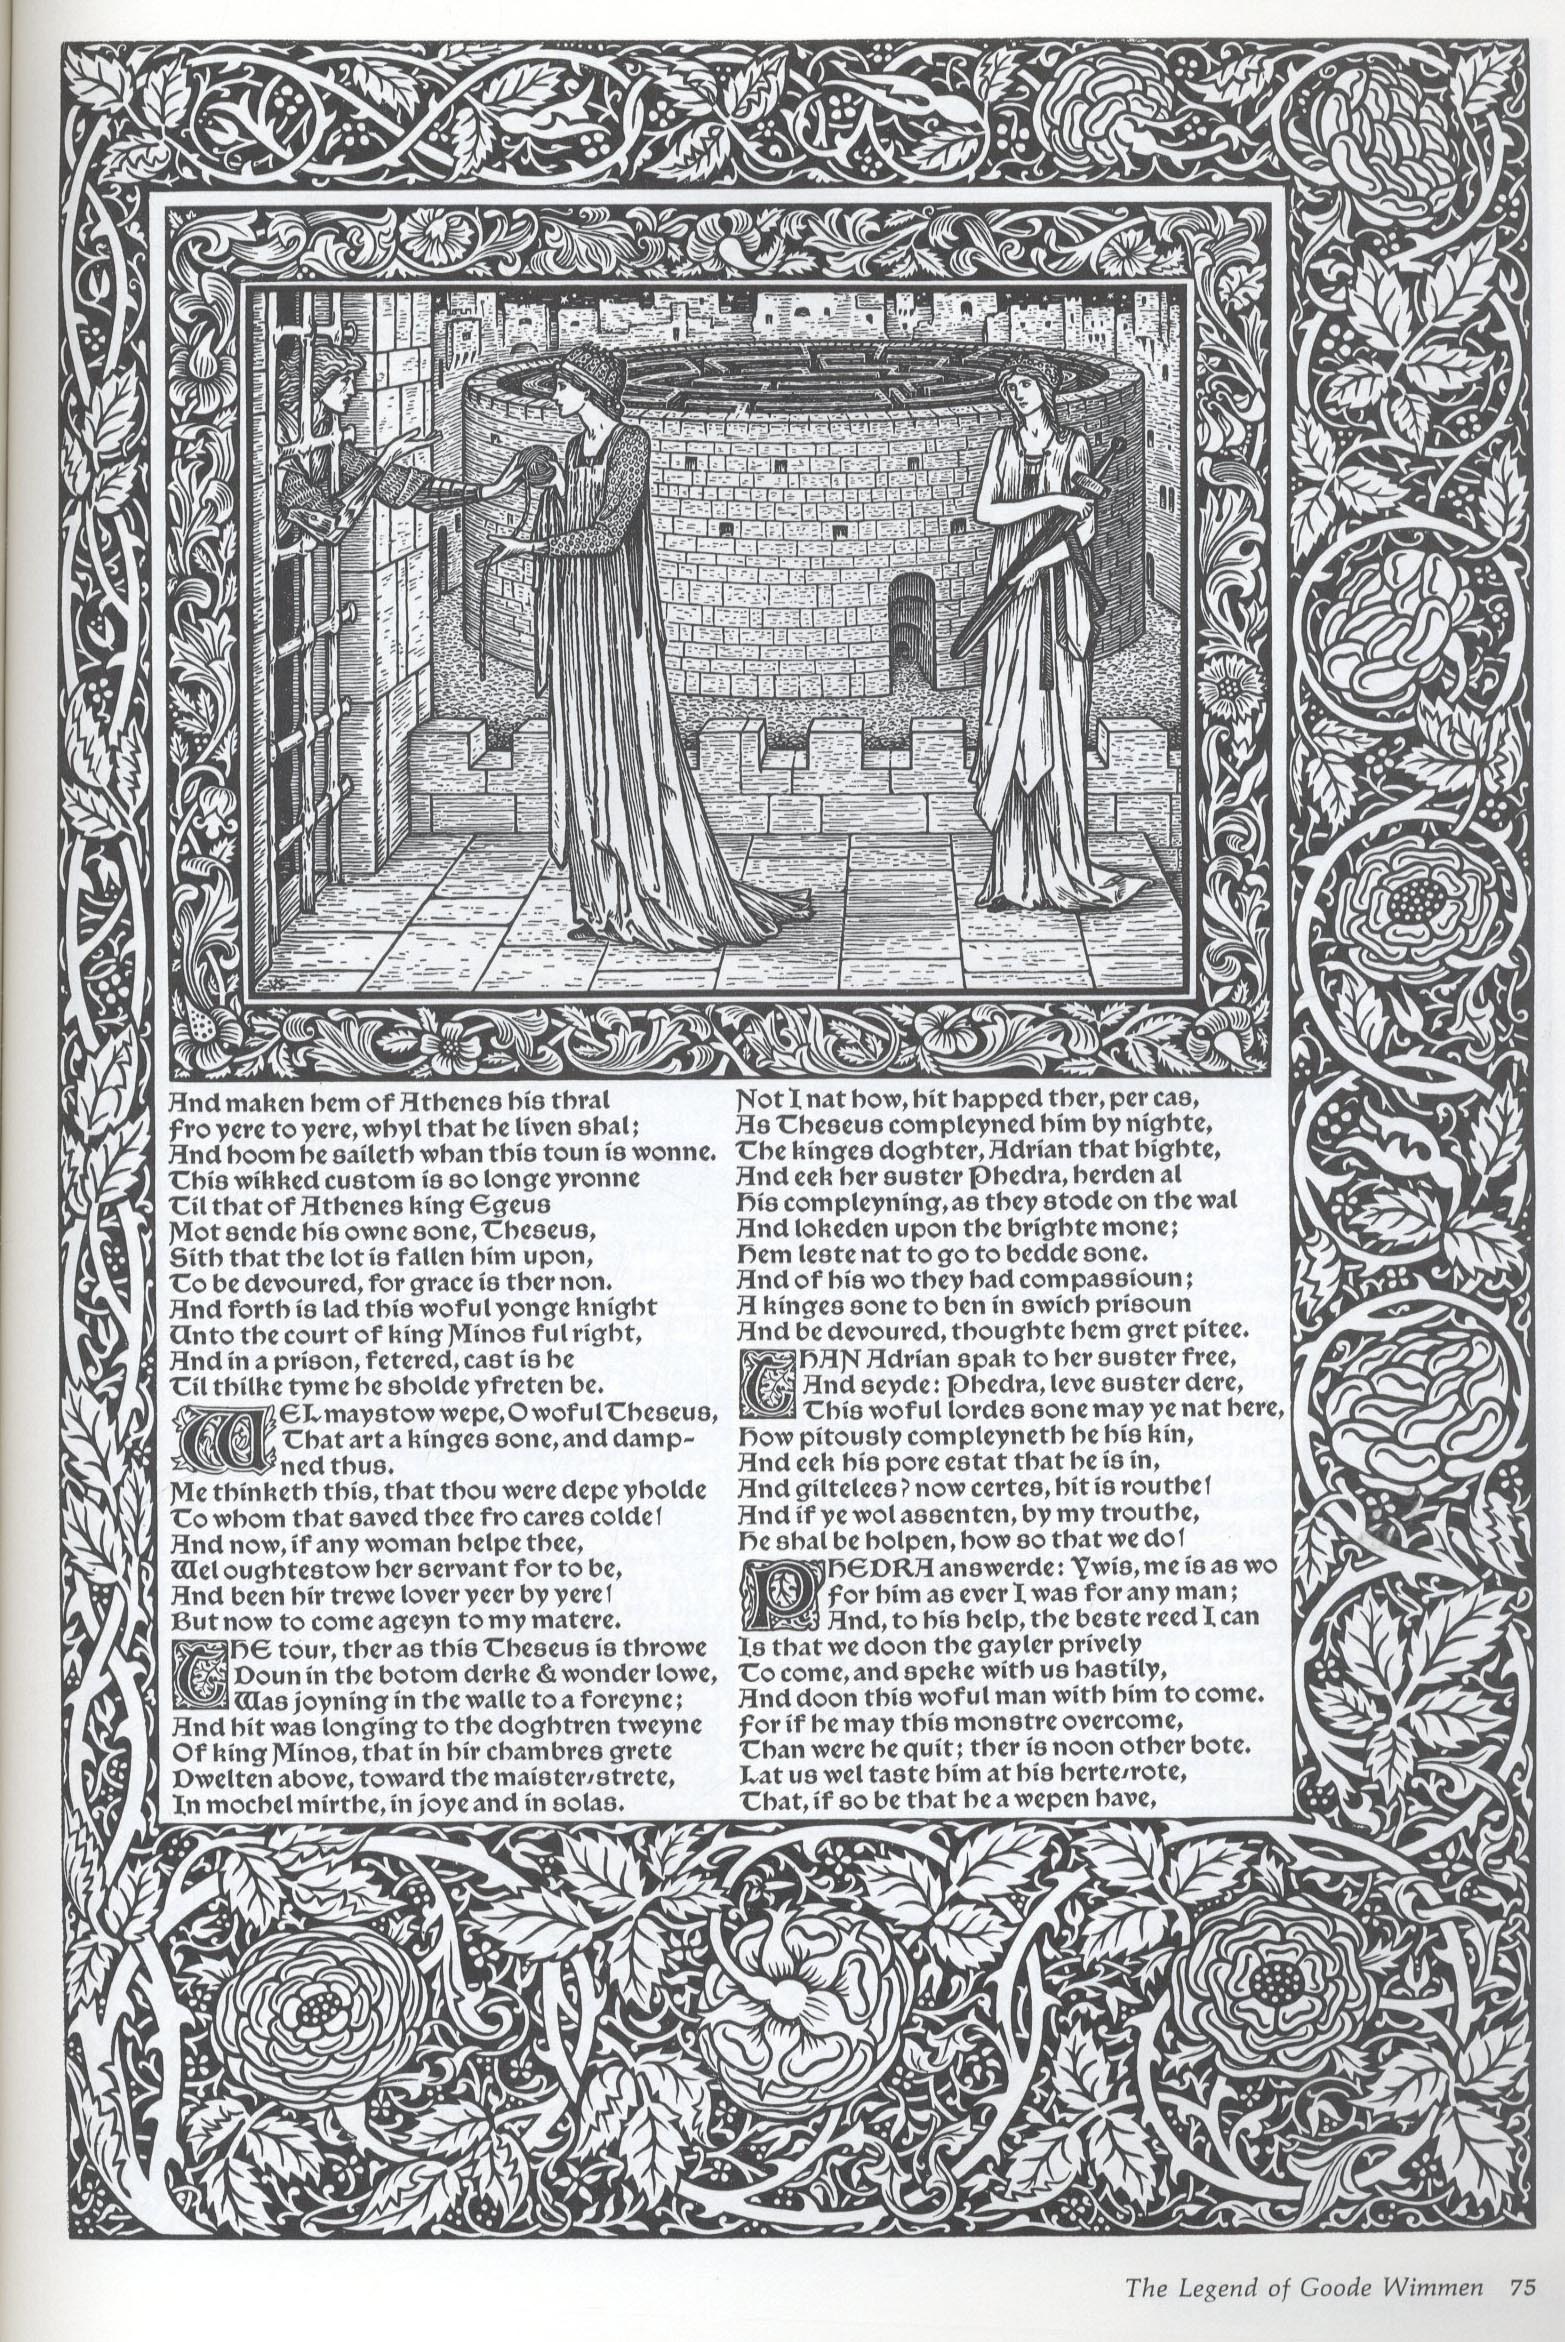 And maken hem of Athenes his thral
Fro yere to yere, whyl that he liven shal;
And hoom he saileth whan this toun is wonne.
This wikked custom is so longe yronne
Til that of Athenes king Egeus
Mot sende his owne sone, Theseus,
Sith that the lot is fallen him upon,
To be devoured, for grace is ther non.
And forth is lad this woful yonge knight
Unto the court of king Minos ful right,
And in a prison, fetered, cast is he
Til thilke tyme he sholde yfreten be.
WEL maystow wepe, O woful Theseus,
That art a kinges sone, and damp-
ned thus.
Me thinketh this, that thou were depe yholde
To whom that saved thee fro cares colde!
And now, if any woman helpe thee,
Wel oughtestow her servant for to be,
And been hir trewe lover yeer by yere!
But now to come ageyn to my matere.
THE tour, ther as this Theseus is throwe
Doun in the botom derke & wonder lowe,
Was joyning in the walle to a foreyne;
And hit was longing to the doghtren tweyne
Of king Minos, that in hir chambres grete
Dwelten above, toward the maister-strete,
In mochel mirthe, in joye and in solas.
Not I nat how, hit happed ther, per cas,
As Theseus compleyned him by nighte,
The kinges doghter, Adrian that highte,
And eek her suster Phedra, herden al
His compleyning, as they stode on the wal
And lokeden upon the brighte mone;
Hem leste nat to go to bedde sone.
And of his wo they had compassioun;
A kinges sone to ben in swich prisoun
And be devoured, thoughte hem gret pitee.
THAN Adrian spak to her suster free,
And seyde: Phedra, leve suster dere,
This woful lordes sone may ye nat here,
How pitously compleyneth he his kin,
And eek his pore estat that he is in,
And giltelees? now certes, hit is routhe!
And if ye wol assenten, by my trouthe,
He shal be holpen, how so that we do!
PHEDRA answerde: Ywis, me is as wo
For him as ever I was for any man;
And, to his help, the beste reed I can
Is that we doon the gayler prively
To come, and speke with us hastily,
And doon this woful man with him to come.
For if he may this monstre overcome,
Than were he quit; ther is noon other bote.
Lat us wel taste him at his herte-rote,
That, if so be that he a wepen have,
The Legend of Goode Wimmen 75